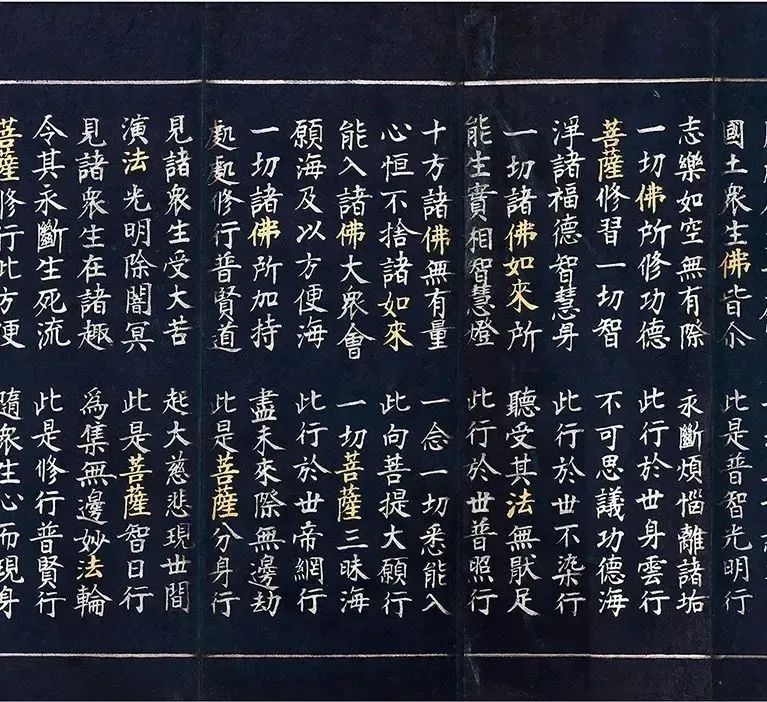 國土衆生佛皆尒 此是普智光明行
志樂如空無有際 永斷煩惱離諸垢
一切佛所修功德 此行於世身雲行
菩薩修習一切智 不可思議功德海
淨諸福德智慧身 此行於世不染行
一切諸佛如來所 聽受其法無猒足
能生實相智慧燈 此行於世普照行
十方諸佛無有量 一念一切悉能入
心恒不捨諸如來 此向菩提大願行
能入諸佛大衆會 一切菩薩三昧海
願海及以方便海 此行於世帝網行
一切諸佛所加持 盡未來際無邊劫
處處修行普賢道 此是菩薩分身行
見諸衆生受大苦 起大慈悲現世間
演法光明除闇冥 此是菩薩智日行
見諸衆生在諸趣 爲集無邊妙法輪
令其永斷生死流 此是修行普賢行
菩薩修行此方便 隨衆生心而現身